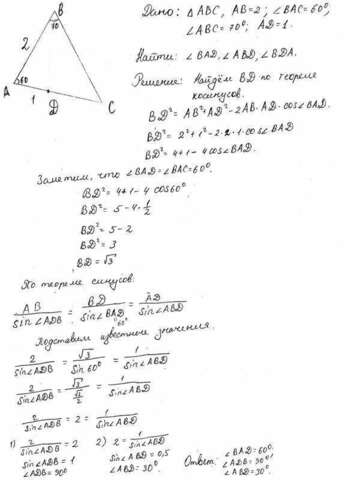 B
70
2
A
60
1
D
C
Дано: △ABC, AB=2; ∠BAC=60°,
∠ABC=70°; AD=1.
Найти: ∠BAD, ∠ABD, ∠BDA.
Решение: Найдём BD по теореме
косинусов.
BD²=AB²+AD²-2AB·AD·cos∠BAD.
BD²=2²+1²-2·2·1·cos∠BAD
BD²=4+1-4cos∠BAD.
Заметим, что ∠BAD=∠BAC=60°.
BD²=4+1-4cos60°
BD²=5-4·1/2
BD²=5-2
BD²=3
BD=√3
По теореме синусов:
AB/sin∠ADB = BD/sin∠BAD = AD/sin∠ABD
"60°
Подставим известные значения.
2/sin∠ADB = √3/sin60° = 1/sin∠ABD
2/sin∠ADB = √3/(√3/2) = 1/sin∠ABD
2/sin∠ADB = 2 = 1/sin∠ABD
1) 2/sin∠ADB = 2 2) 2 = 1/sin∠ABD
sin∠ADB=1 sin∠ABD=0,5
∠ADB=90° ∠ABD=30°.
Ответ: ∠BAD=60°.
∠ADB=90°
∠ABD=30°.